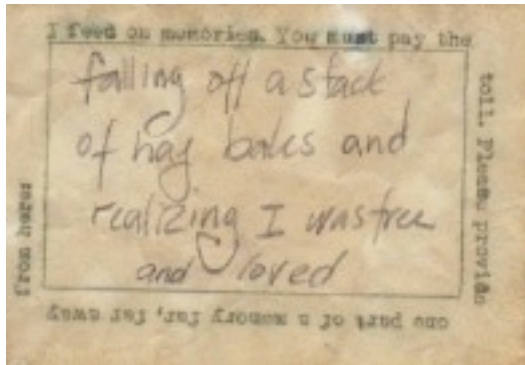 I feed on memories. You must pay the
toll. Please, provide
one part of a memory far, far away
from here:
falling off a stack
of hay bales and
realizing I was free
and loved